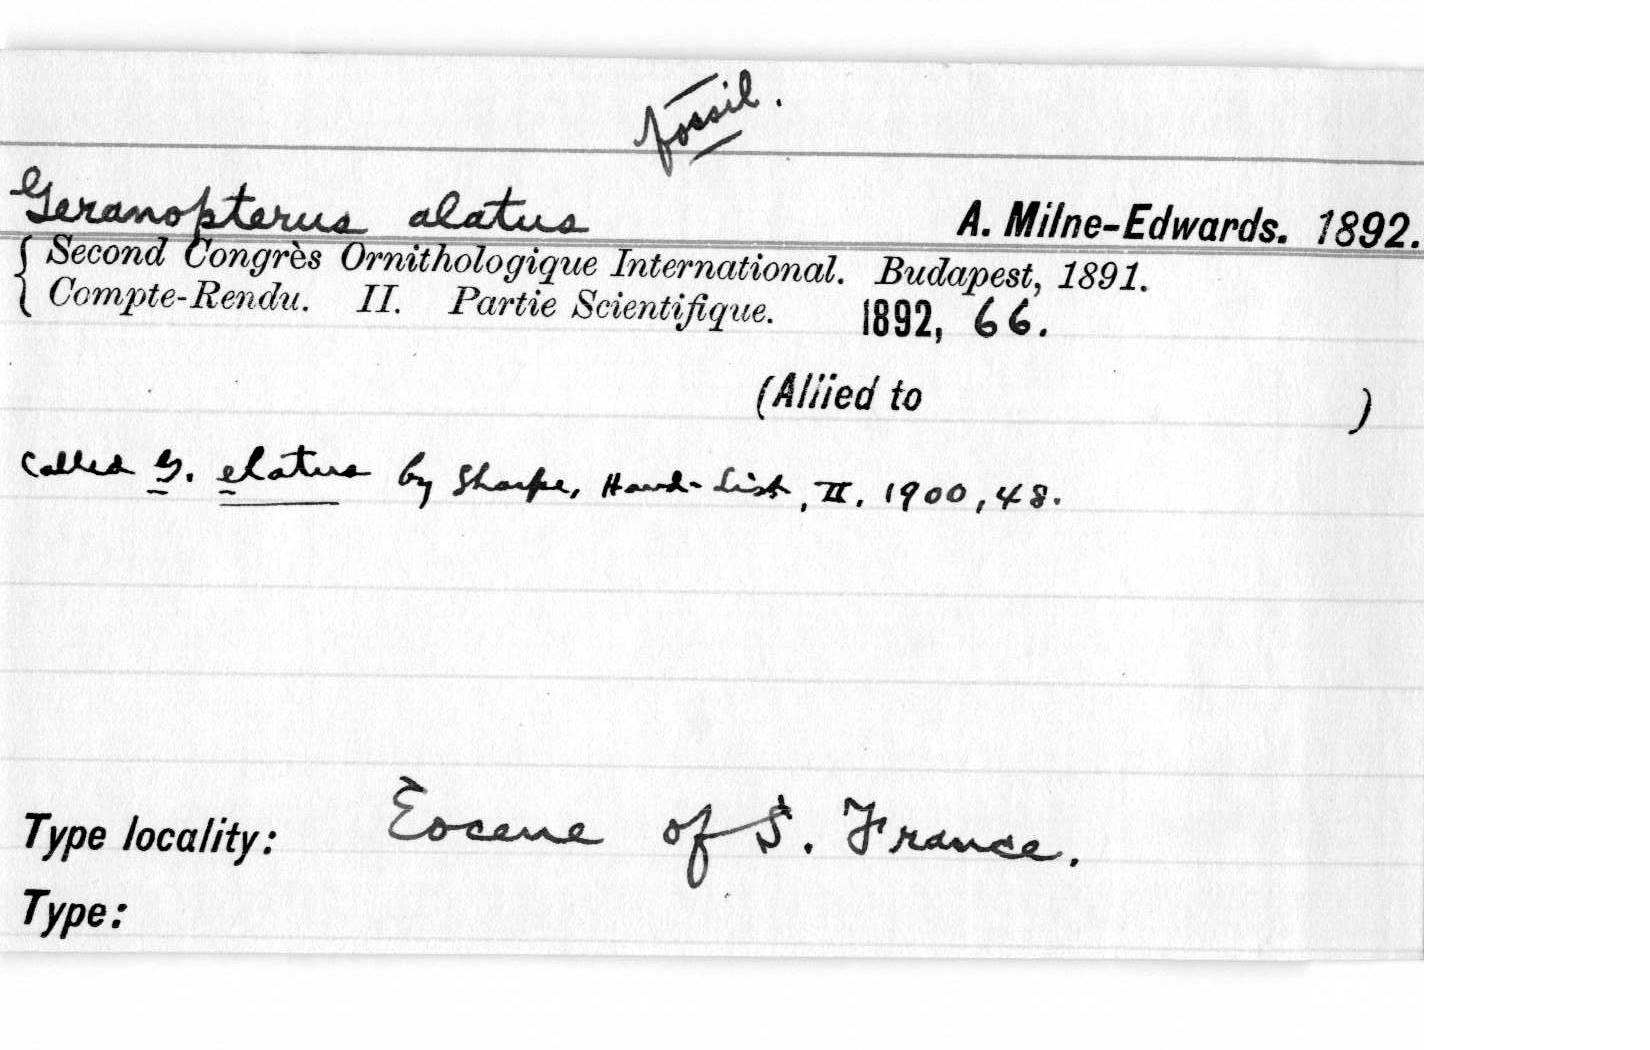 fossil.
Geranopterus alatus A. Milne-Edwards. 1892.
Second Congrès Ornithologique International. Budapest, 1891.
Compte-Rendu. II. Partie Scientifique. 1892, 66.
(Allied to )
Called G. elatus by Sharpe, Hand-List, II. 1900, 48.
Type locality: Eocene of S. France.
Type: